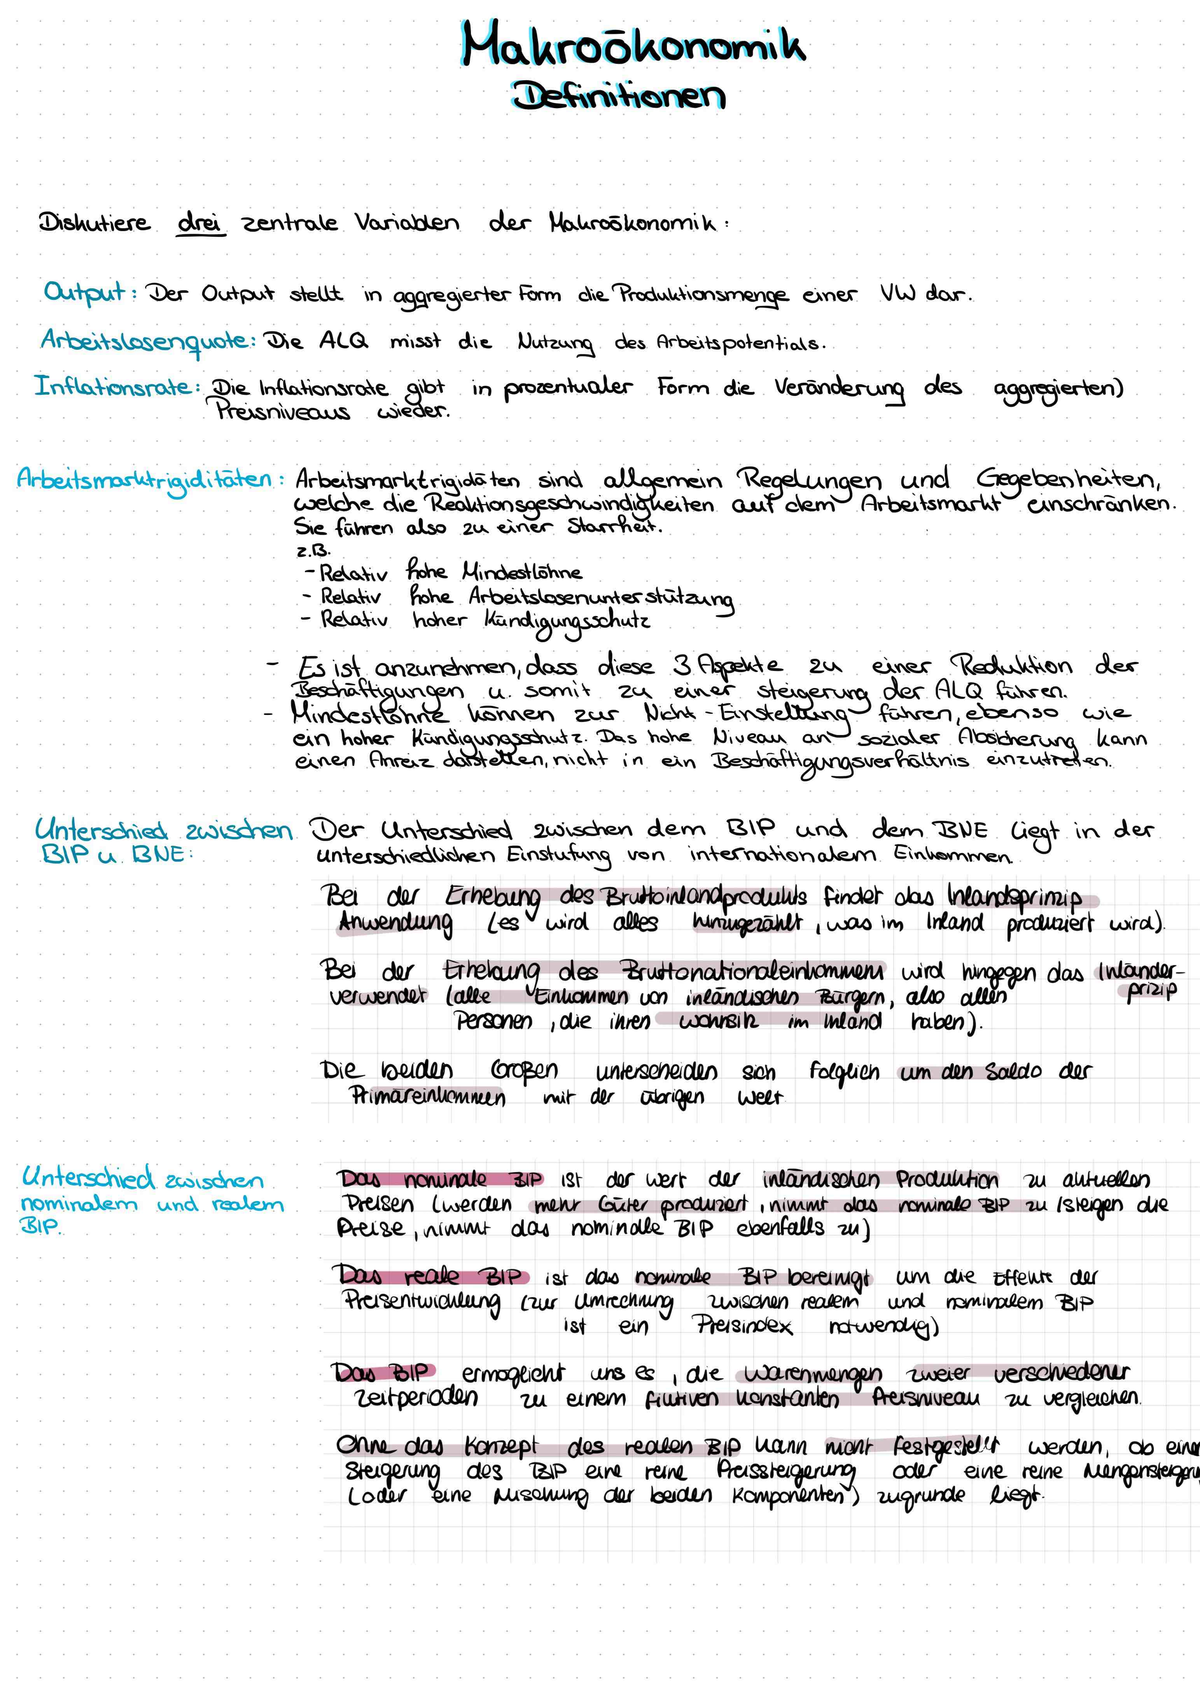 Makroökonomik
Definitionen
Diskutiere drei zentrale Variablen der Makroökonomik:
Output: Der Output stellt in aggregierter Form die Produktionsmenge einer VW dar.
Arbeitslosenquote: Die ALQ misst die Nutzung des Arbeitspotentials.
Inflationsrate: Die Inflationsrate gibt in prozentualer Form die Veränderung des aggregierten)
Preisniveaus wieder.
Arbeitsmarktrigiditäten: Arbeitsmarktrigidäten sind allgemein Regelungen und Gegebenheiten,
welche die Reaktionsgeschwindigkeiten auf dem Arbeitsmarkt einschränken.
Sie führen also zu einer Starrheit.
z.B.
- Relativ hohe Mindestlöhne
- Relativ hohe Arbeitslosenunterstützung
- Relativ hoher Kündigungsschutz
- Es ist anzunehmen, dass diese 3 Aspekte zu einer Reduktion der
Beschäftigungen u. somit zu einer steigerung der ALQ führen.
- Mindestlöhne können zur Nicht-Einstellung führen, ebenso wie
ein hoher Kündigungsschutz. Das hohe Niveau an sozialer Absicherung kann
einen Anreiz darstellen, nicht in ein Beschäftigungsverhältnis einzutreten.
Unterschied zwischen
BIP u. BNE:
Der Unterschied zwischen dem BIP und dem BNE liegt in der
unterschiedlichen Einstufung von internationalem Einkommen
Bei der Erhebung des Bruttoinlandprodukts findet das Inlandsprinzip
Anwendung (es wird alles hinzugezählt, was im Inland produziert wird).
Bei der Erhebung des Bruttonationaleinkommens wird hingegen das Inländer-
prizip
verwendet (alle Einkommen von inländischen Bürgern, also allen
Personen, die ihren Wohnsitz im Inland haben).
Die beiden Größen unterscheiden sich folglich um den Saldo der
Primäreinkommen mit der übrigen Welt
Unterschied zwischen
nominalem und realem
BIP.
Das nominale BIP ist der wert der inländischen Produktion zu aktuellen
Preisen (werden mehr Güter produziert, nimmt das nominale BIP zu / steigen die
Preise, nimmt das nominalle BIP ebenfalls zu)
Das reale BIP ist das nominale BIP bereinigt um die Effekte der
Preisentwicklung (zur Umrechnung zwischen realem und nominalem BIP
ist ein Preisindex notwendig)
Das BIP ermöglicht uns es, die Warenmengen zweier verschiedener
zeitperioden zu einem fiktiven konstanten Preisniveau zu vergleichen.
Ohne das Konzept des realen BIP kann nicht festgestellt werden, ob einer
Steigerung des BIP eine reine Preissteigerung oder eine reine
(oder eine Mischung der beiden Komponenten) zugrunde liegt.